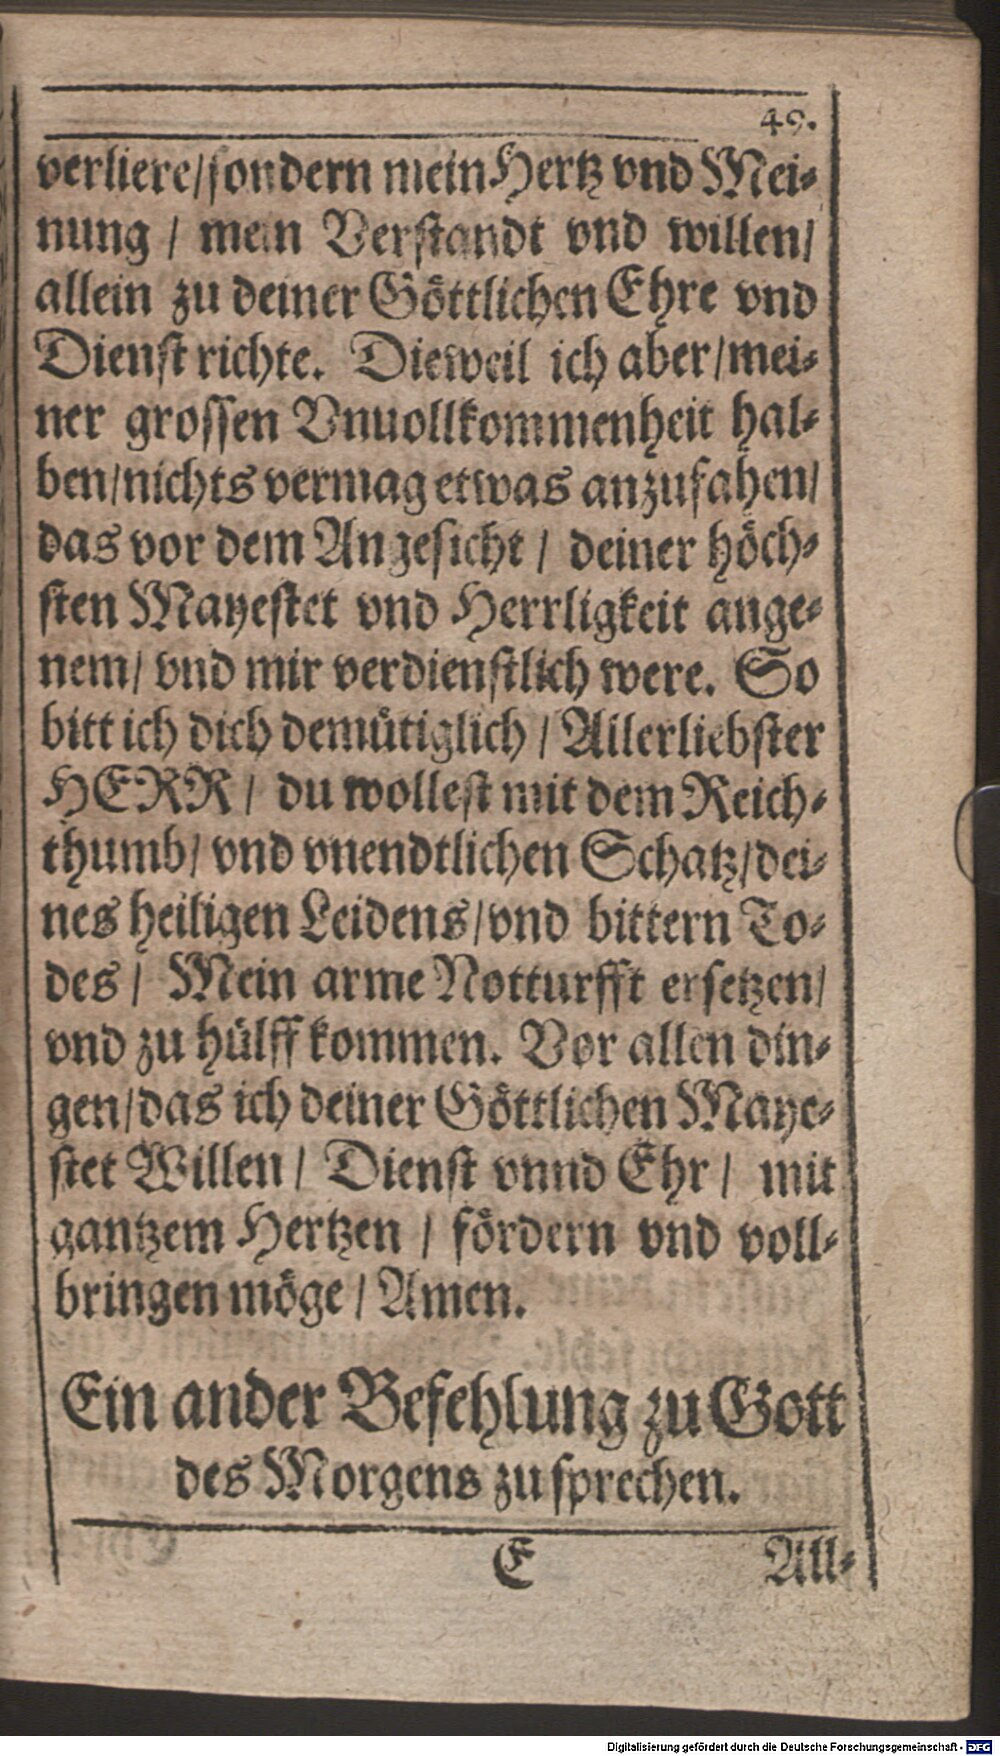 49.
verliere/sondern mein Hertz vnd Mei⸗
nung / mein Verstandt vnd willen/
allein zu deiner Göttlichen Ehre vnd
Dienst richte. Dieweil ich aber/mei⸗
ner grossen Vnuollkommenheit hal⸗
ben/nichts vermag etwas anzufahen/
das vor dem Angesicht / deiner höch⸗
sten Mayestet vnd Herrligkeit ange⸗
nem/ vnd mir verdienstlich were. So
bitt ich dich demütiglich / Allerliebster
HERR / du wollest mit dem Reich⸗
thumb/ vnd vnendtlichen Schatz/dei⸗
nes heiligen Leidens/vnd bittern To⸗
des / Mein arme Notturfft ersetzen/
vnd zu hülff kommen. Vor allen din⸗
gen/das ich deiner Göttlichen Maye⸗
stet Willen / Dienst vnnd Ehr / mit
gantzem Hertzen / fördern vnd voll⸗
bringen möge / Amen.
Ein ander Befehlung zu Gott
des Morgens zu sprechen.
E All⸗
Digitalisierung gefördert durch die Deutsche Forschungsgemeinschaft - DFG